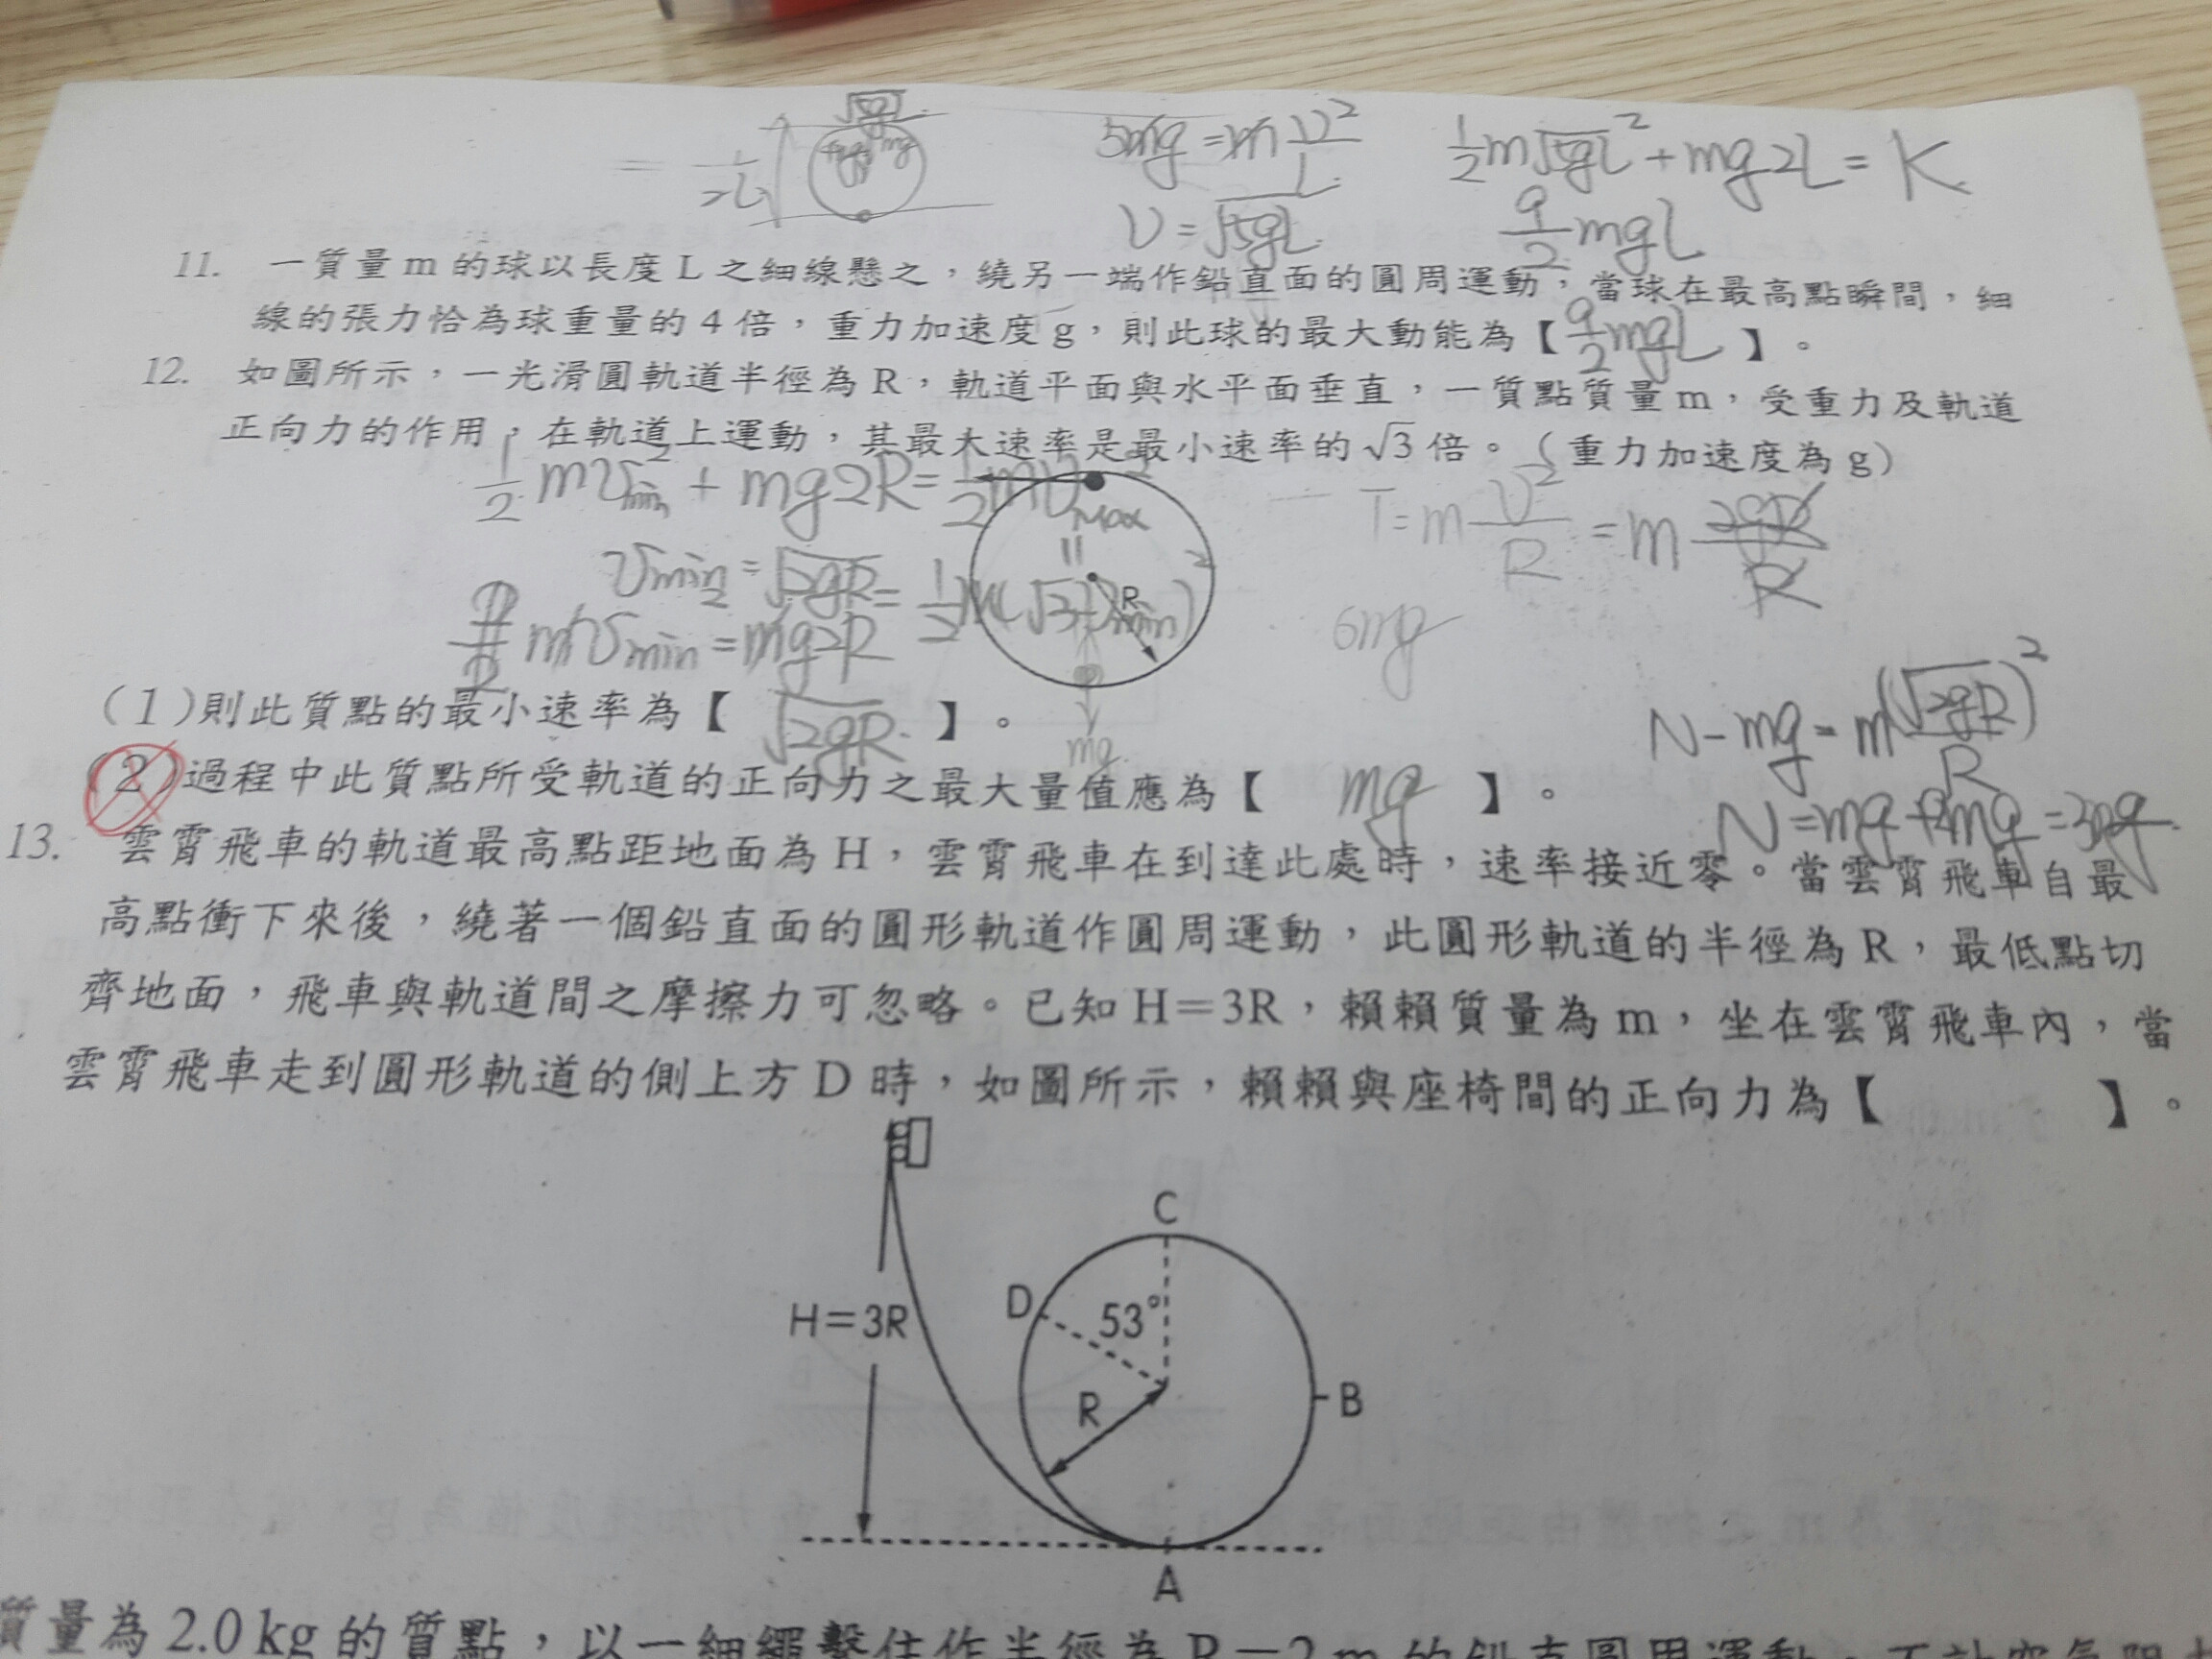 5mg = m v²/L
½m√5gL² + mg2L = K
v = √5gL
9/2 mgL
11. 一質量 m 的球以長度 L 之細線懸之，繞另一端作鉛直面的圓周運動，當球在最高點瞬間，細
線的張力恰為球重量的 4 倍，重力加速度 g，則此球的最大動能為【 9/2 mgL 】。
12. 如圖所示，一光滑圓軌道半徑為 R，軌道平面與水平面垂直，一質點質量 m，受重力及軌道
正向力的作用，在軌道上運動，其最大速率是最小速率的 √3 倍。（重力加速度為 g）
½mv²min + mg2R = ½mv²Max
T = m v²/R = m 2gR/R
vmin = √2gR = ½m(√3vmin)²
R
6mg
mvmin = mg2R
(1)則此質點的最小速率為【 √2gR 】。
mg
N - mg = m(√2gR)²/R
(2)過程中此質點所受軌道的正向力之最大量值應為【 mg 】。
N = mg + 2mg = 3mg
13. 雲霄飛車的軌道最高點距地面為 H，雲霄飛車在到達此處時，速率接近零。當雲霄飛車自最
高點衝下來後，繞著一個鉛直面的圓形軌道作圓周運動，此圓形軌道的半徑為 R，最低點切
齊地面，飛車與軌道間之摩擦力可忽略。已知 H＝3R，賴賴質量為 m，坐在雲霄飛車內，當
雲霄飛車走到圓形軌道的側上方 D 時，如圖所示，賴賴與座椅間的正向力為【 】。
C
D
53°
H＝3R
R
B
A
質量為 2.0 kg 的質點，以一細繩繫住作半徑為 R＝2 m 的鉛直圓周運動，不計空氣阻